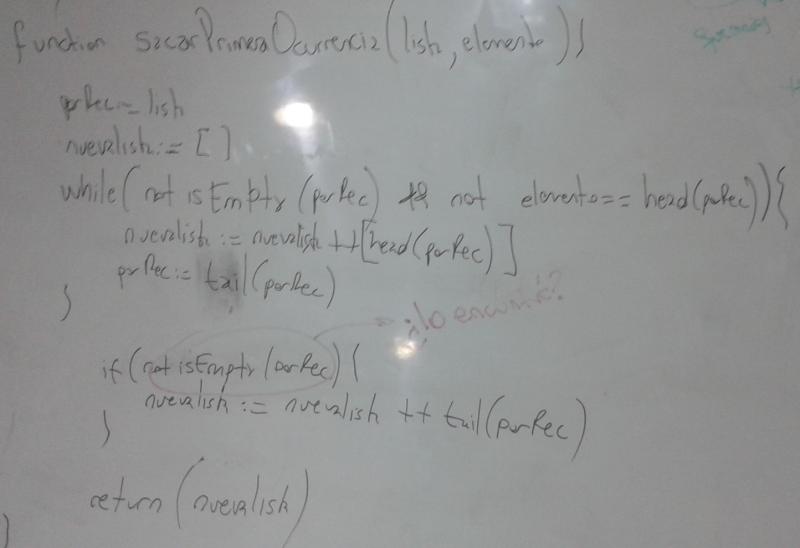 function sacarPrimeraOcurrencia(lista, elemento){
porRec := lista
nuevalista := []
while( not isEmpty (porRec) && not elemento == head(porRec)){
nuevalista := nuevalista ++ [head(porRec)]
porRec := tail(porRec)
}
¿lo encontré?
if (not isEmpty (porRec) {
nuevalista := nuevalista ++ tail(porRec)
}
return (nuevalista)
}